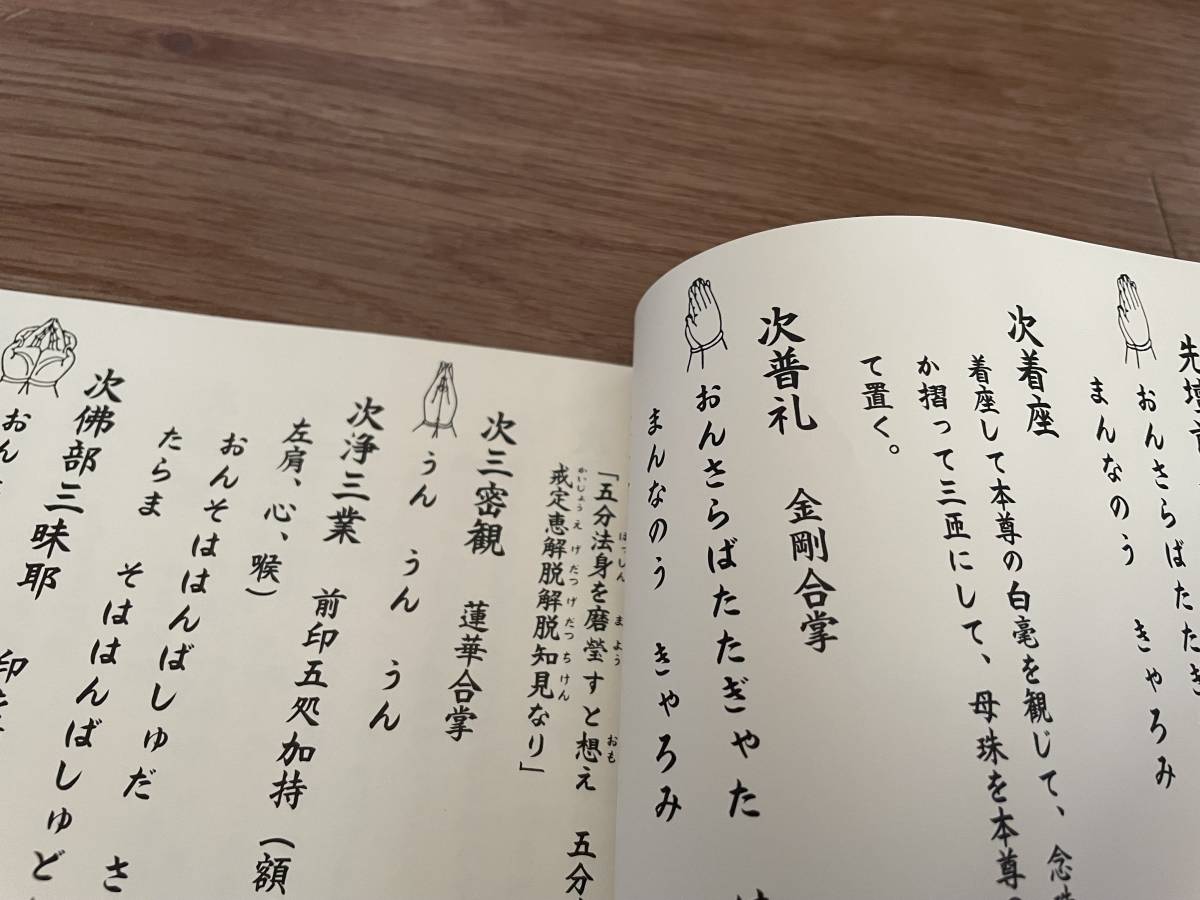 先壇前
おんさらばたたぎ
まんなのう　きゃろみ
次着座
着座して本尊の白毫を観じて、念珠
か摺って三匝にして、母珠を本尊
て置く。
次普礼　金剛合掌
おんさらばたたぎゃた
まんなのう　きゃろみ
「五分法身を磨瑩すと想え　五分
戒定恵解脱解脱知見なり」
次三密観　蓮華合掌
うん　うん　うん
次浄三業　前印五処加持（額
左肩、心、喉）
おんそははんばしゅだ　さ
たらま　そははんばしゅど
次佛部三昧耶　印
おん